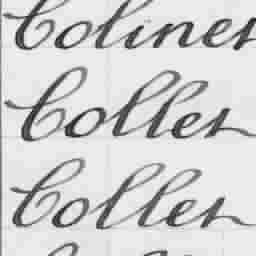 Colines
Coller
Coller